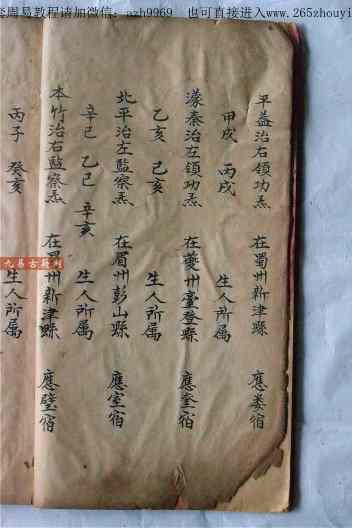 套周易教程请加微信：azh9969 也可直接进入www.265zhouyi
平益治右领功炁 在蜀州新津縣 應娄宿
甲戌 丙戌 生人所属
濛秦治左领功炁 在夔州臺登縣 應奎宿
乙亥 己亥 生人所属
北平治左監察炁 在眉州彭山縣 應室宿
辛巳 乙巳 辛亥 生人所属
本竹治右監察炁 在蜀州新津縣 應壁宿
丙子 癸亥 生人所属
九易古籍网